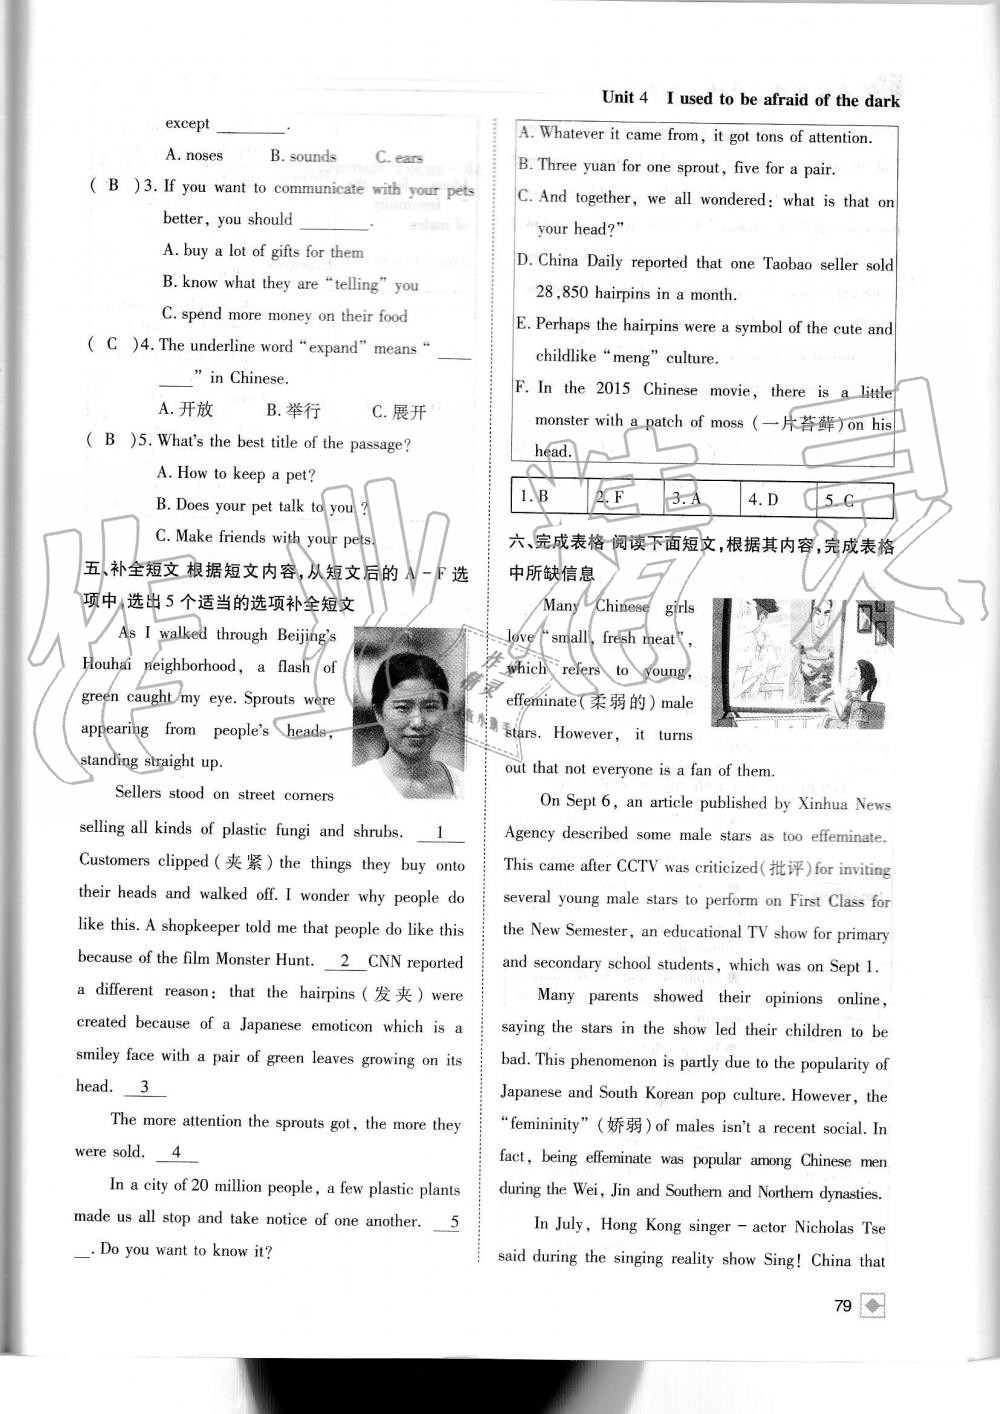 Unit 4 I used to be afraid of the dark
except ________.
A. noses B. sounds C. ears
( B )3. If you want to communicate with your pets
better, you should ________.
A. buy a lot of gifts for them
B. know what they are “telling” you
C. spend more money on their food
( C )4. The underline word “expand” means “ ____
____” in Chinese.
A. 开放 B. 举行 C. 展开
( B )5. What's the best title of the passage?
A. How to keep a pet?
B. Does your pet talk to you ?
C. Make friends with your pets.
五、补全短文 根据短文内容,从短文后的 A - F 选
项中,选出 5 个适当的选项补全短文
As I walked through Beijing's
Houhai neighborhood, a flash of
green caught my eye. Sprouts were
appearing from people's heads,
standing straight up.
Sellers stood on street corners
selling all kinds of plastic fungi and shrubs. __1__
Customers clipped(夹紧)the things they buy onto
their heads and walked off. I wonder why people do
like this. A shopkeeper told me that people do like this
because of the film Monster Hunt. __2__ CNN reported
a different reason: that the hairpins(发夹)were
created because of a Japanese emoticon which is a
smiley face with a pair of green leaves growing on its
head. __3__
The more attention the sprouts got, the more they
were sold. __4__
In a city of 20 million people, a few plastic plants
made us all stop and take notice of one another. __5
__. Do you want to know it?
A. Whatever it came from, it got tons of attention.
B. Three yuan for one sprout, five for a pair.
C. And together, we all wondered: what is that on
your head?”
D. China Daily reported that one Taobao seller sold
28,850 hairpins in a month.
E. Perhaps the hairpins were a symbol of the cute and
childlike “meng” culture.
F. In the 2015 Chinese movie, there is a little
monster with a patch of moss (一片苔藓)on his
head.
1. B 2. F 3. A 4. D 5. C
六、完成表格 阅读下面短文,根据其内容,完成表格
中所缺信息
Many Chinese girls
love “small, fresh meat”,
which refers to young,
effeminate(柔弱的)male
stars. However, it turns
out that not everyone is a fan of them.
On Sept 6, an article published by Xinhua News
Agency described some male stars as too effeminate.
This came after CCTV was criticized(批评)for inviting
several young male stars to perform on First Class for
the New Semester, an educational TV show for primary
and secondary school students, which was on Sept 1.
Many parents showed their opinions online,
saying the stars in the show led their children to be
bad. This phenomenon is partly due to the popularity of
Japanese and South Korean pop culture. However, the
“femininity”(娇弱)of males isn't a recent social. In
fact, being effeminate was popular among Chinese men
during the Wei, Jin and Southern and Northern dynasties.
In July, Hong Kong singer - actor Nicholas Tse
said during the singing reality show Sing! China that
79
作业精灵